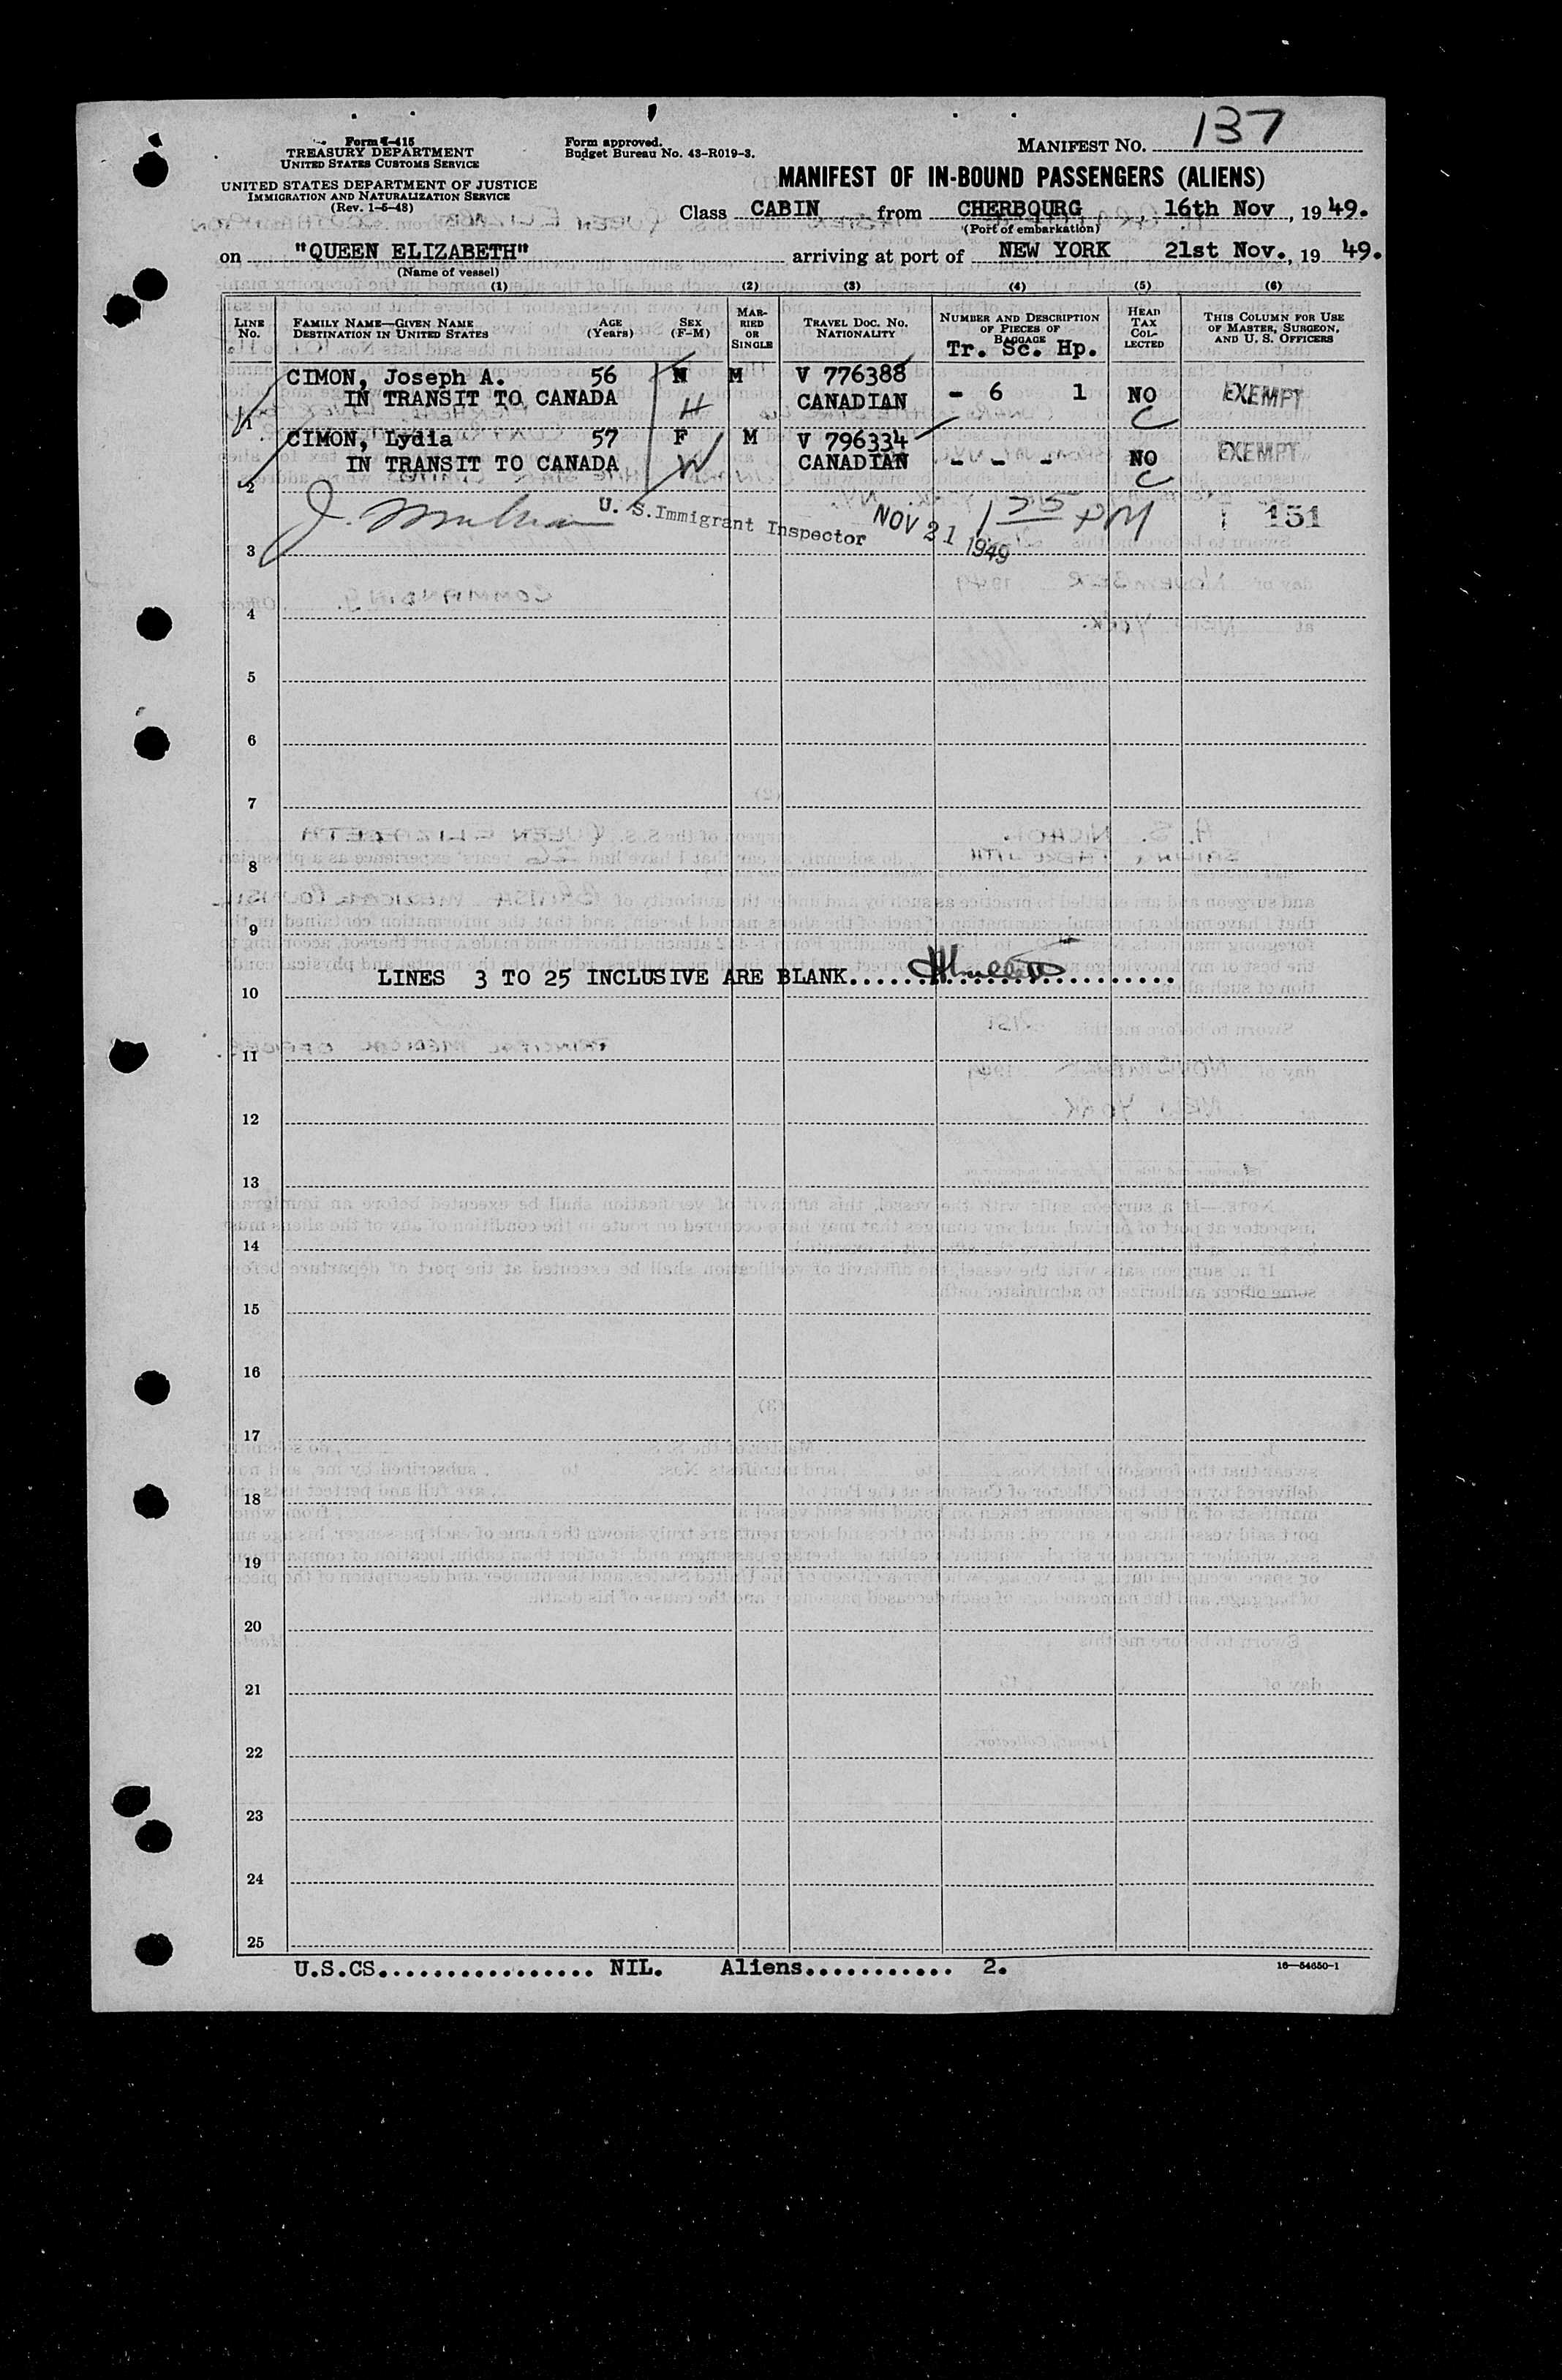 Form I-415
TREASURY DEPARTMENT
UNITED STATES CUSTOMS SERVICE
UNITED STATES DEPARTMENT OF JUSTICE
IMMIGRATION AND NATURALIZATION SERVICE
(Rev. 1-5-48)
Form approved.
Budget Bureau No. 43-R019-3.
MANIFEST NO. 137
MANIFEST OF IN-BOUND PASSENGERS (ALIENS)
Class CABIN from CHERBOURG, 16th Nov, 1949.
(Port of embarkation)
on "QUEEN ELIZABETH" arriving at port of NEW YORK 21st Nov., 19 49.
(Name of vessel)
(1) (2) (3) (4) (5) (6)
LINE NO. FAMILY NAME—GIVEN NAME DESTINATION IN UNITED STATES AGE (Years) SEX (F-M) MARRIED OR SINGLE TRAVEL DOC. NO. NATIONALITY NUMBER AND DESCRIPTION OF PIECES OF BAGGAGE HEAD TAX COLLECTED THIS COLUMN FOR USE OF MASTER, SURGEON, AND U. S. OFFICERS
Tr. Sc. Hp.
CIMON, Joseph A. 56 M M V 776388
1 IN TRANSIT TO CANADA H CANADIAN - 6 1 NO C EXEMPT
CIMON, Lydia 57 F M V 796334
2 IN TRANSIT TO CANADA W CANADIAN - - - NO C EXEMPT
U. S. Immigrant Inspector NOV 21 1949 1 35 PM 151
3
4
5
6
7
8
9
LINES 3 TO 25 INCLUSIVE ARE BLANK
10
11
12
13
14
15
16
17
18
19
20
21
22
23
24
25
U.S.CS................. NIL. Aliens............ 2.
16—54650-1